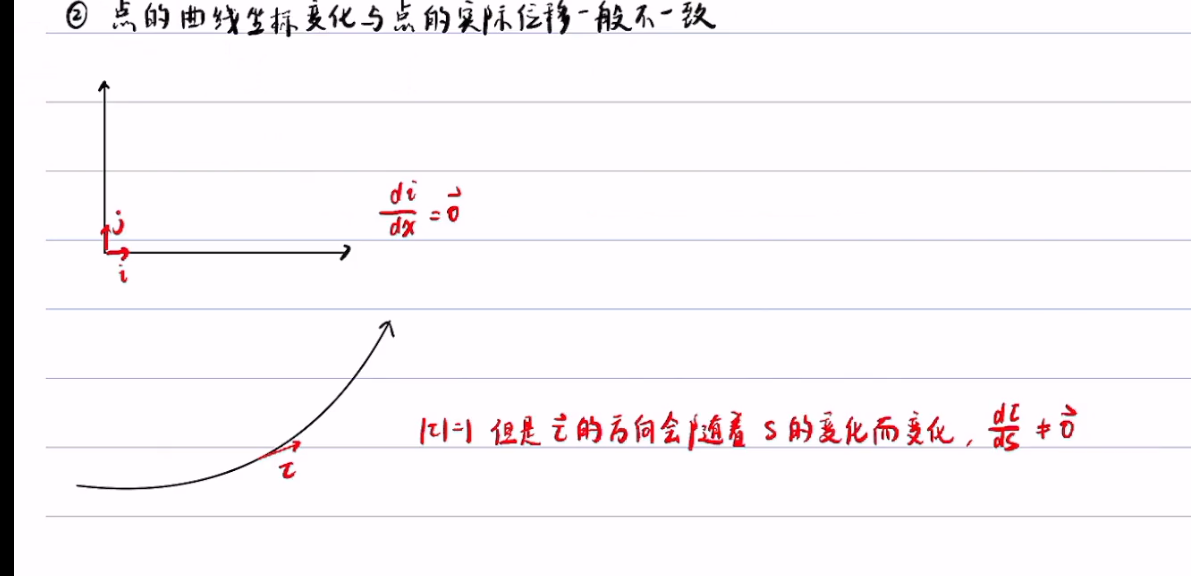 ② 点的曲线坐标变化与点的实际位移一般不一致
di/dx = 0⃗
j
i
|τ|=1 但是 τ⃗ 的方向会随着 s 的变化而变化, dτ/ds ≠ 0⃗
τ